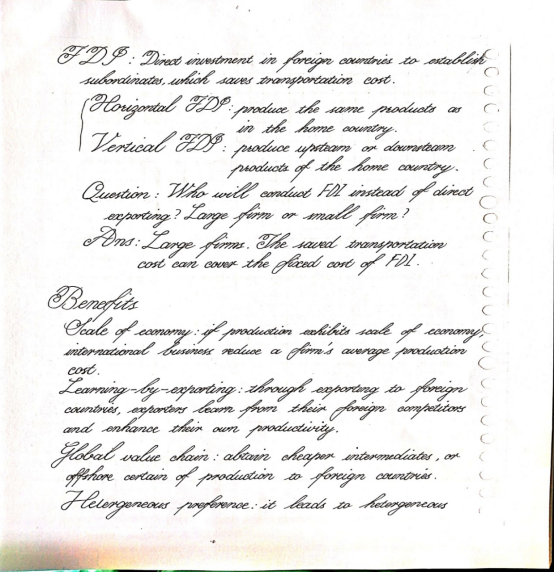 FDI : Direct investment in foreign countries to establish
subordinates, which saves transportation cost.
Horizontal FDI : produce the same products as
in the home country.
Vertical FDI : produce upsteam or downsteam
products of the home country.
Question : Who will conduct FDI instead of direct
exporting? Large firm or small firm?
Ans: Large firms. The saved transportation
cost can cover the fixed cost of FDI.
Benefits
Scale of economy: if production exhibits scale of economy,
international business reduce a firm's average production
cost.
Learning-by-exporting: through exporting to foreign
countries, exporters learn from their foreign competitors
and enhance their own productivity.
Global value chain: obtain cheaper intermediates, or
offshore certain of production to foreign countries.
Hetergeneous preference: it leads to hetergneous